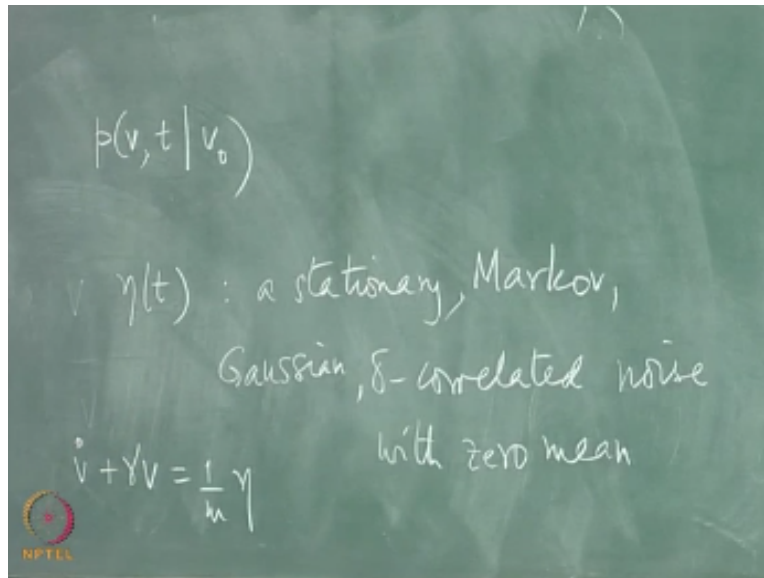 p(v, t | v₀)
η(t) : a stationary, Markov,
Gaussian, δ-correlated noise
with zero mean
v̇ + γv = 1/m η
NPTEL